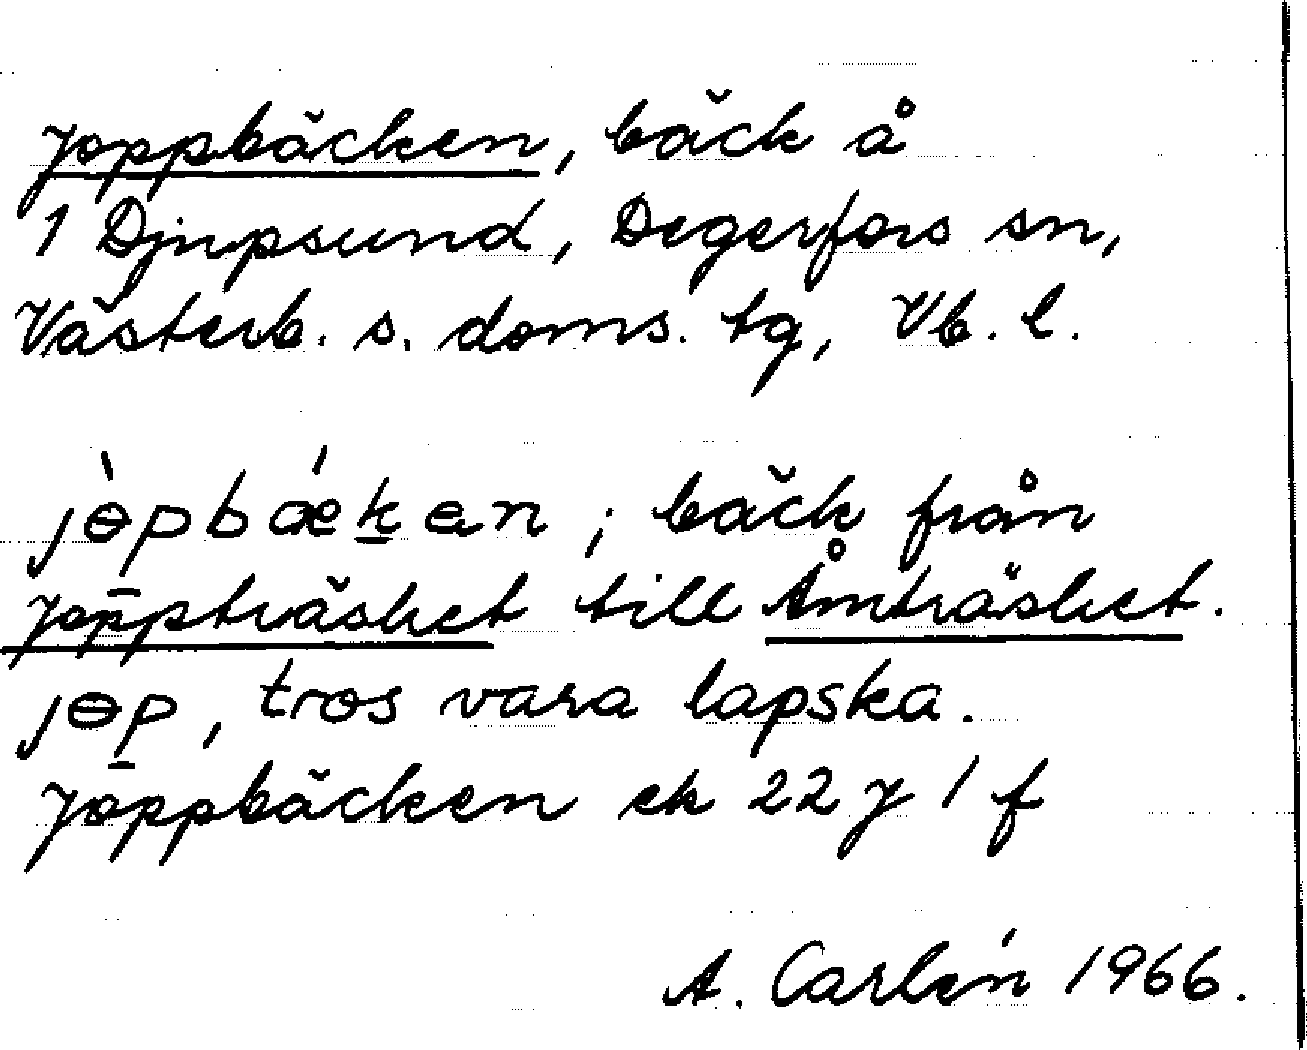 Joppbäcken, bäck å
1 Djupsund, Degerfors sn,
Västerb. s. doms. tg, Vb. l.
jɵ̀pbǽk̲an ; bäck från
Joppträsket till Åmträsket.
jɵp̲, tros vara lapska.
Joppbäcken ek 22 J 1 f
A. Carlén 1966.